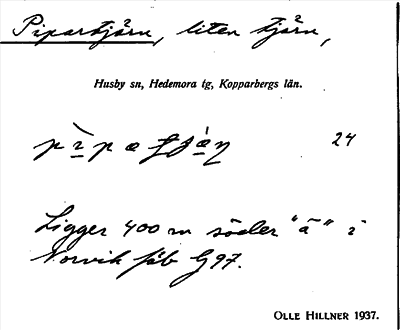 Pipartjärn, liten tjärn,
Husby sn, Hedemora tg, Kopparbergs län.
24
Ligger 400 m söder "ä" i
Norvik fäb G97.
OLLE HILLNER 1937.